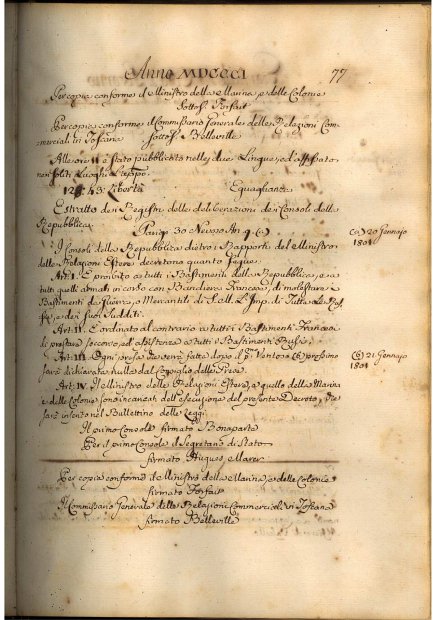 Anno MDCCCI 77
Per copia conforme il Ministro della Marina, e delle Colonie
sottos. Forfait
Per copia conforme il Commissario Generale delle Relazioni Com-
merciali in Toscana sottos. Belleville
Alle ore 11 è stato pubblicato nelle due Lingue, ed affissato
nei soliti Luoghi
43: Libertà Eguaglianza
Estratto dei Registri delle deliberazioni dei Consoli della
Repubblica
Parigi 30 Nevoso An. 9. (a)
(a) 20 Gennajo
1801
I Consoli della Repubblica dietro i Rapporti del Ministro
delle Relazioni Estere decretono quanto segue.
Art: I. È proibito a tutti i Bastimenti della Repubblica, e a
tutti quelli armati in corso con Bandiera Francese, di molestare i
Bastimenti da Guerra, o Mercantili di S. M. L'Imp. di Tutte le Rus-
sie, e dei suoi Sudditi.
Art: II. È ordinato al contrario a tutti i Bastimenti Francesi
di prestare soccorso ed assistenza a tutti i Bastimenti Russi.
Art: III. Ogni presa che verrà fatta dopo il p.º Ventoso (b) prossimo
sarà dichiarata nulla dal Consiglio delle Prese.
(b) 21 Gennajo
1801
Art: IV. Il Ministro delle Relazioni Estere, e quello della Marina
e delle Colonie sono incaricati dell'esecuzione del presente Decreto, che
sarà inserito nel Bullettino delle Leggi.
Il primo Console firmato Bonaparte
Per il primo Console il Segretario di Stato
firmato Hugues Maret
Per copia conforme il Ministro della Marina, e delle Colonie
firmato Forfait
Il Commissario Generale delle Relazioni Commerciali in Toscana
firmato Belleville